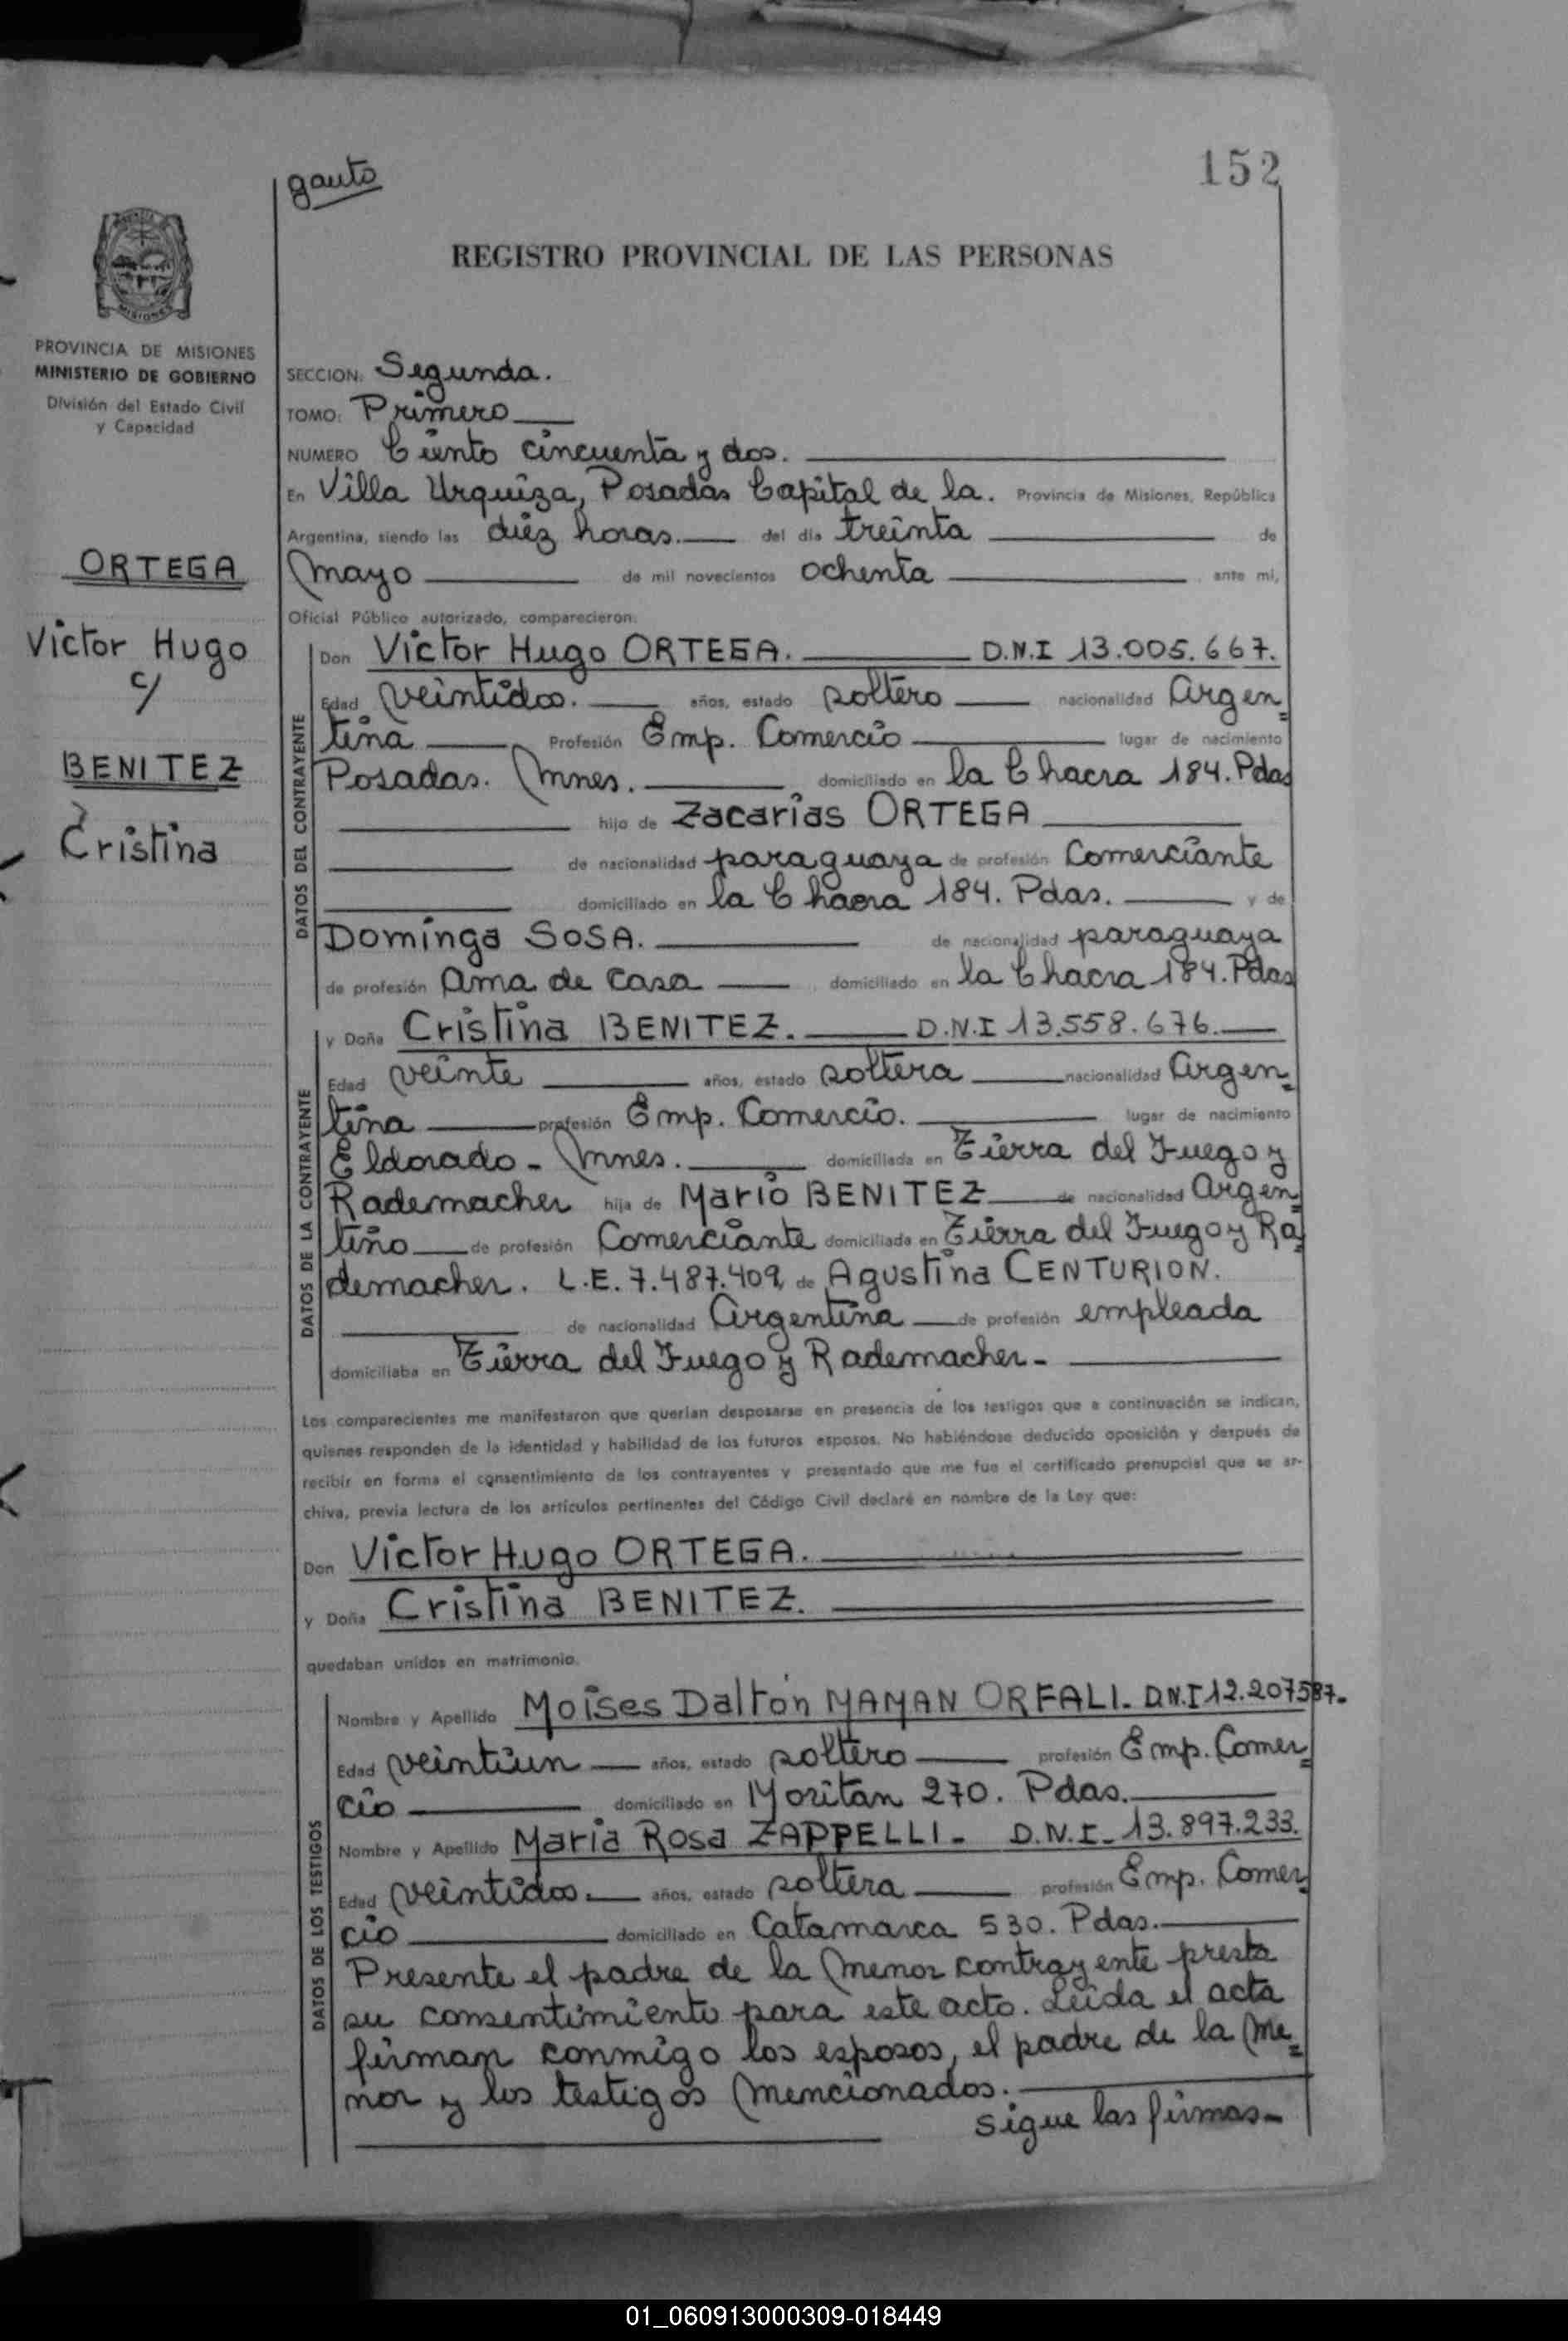 gauto
152
REGISTRO PROVINCIAL DE LAS PERSONAS
MISIONES
PROVINCIA DE MISIONES
MINISTERIO DE GOBIERNO
División del Estado Civil
y Capacidad
ORTEGA
Victor Hugo
c/
BENITEZ
Cristina
SECCION: Segunda.
TOMO: Primero
NUMERO Ciento cincuenta y dos.
En Villa Urquiza, Posadas Capital de la. Provincia de Misiones, República
Argentina, siendo las diez horas. del día treinta de
mayo de mil novecientos ochenta ante mi,
Oficial Público autorizado, comparecieron:
DATOS DEL CONTRAYENTE
Don Victor Hugo ORTEGA. D.N.I 13.005.667.
Edad veintidos. años, estado soltero nacionalidad Argen=
tina Profesión Emp. Comercio lugar de nacimiento
Posadas. Mnes. domiciliado en la Chacra 184. Pdas
hijo de Zacarias ORTEGA
de nacionalidad paraguaya de profesión Comerciante
domiciliado en la Chacra 184. Pdas. y de
Dominga SOSA. de nacionalidad paraguaya
de profesión Ama de casa domiciliado en la Chacra 184. Pdas
DATOS DE LA CONTRAYENTE
y Doña Cristina BENITEZ. D.N.I 13.558.676.
Edad veinte años, estado soltera nacionalidad Argen=
tina profesión Emp. Comercio. lugar de nacimiento
Eldorado - Mnes. domiciliada en Tierra del Fuego y
Rademacher hija de Mario BENITEZ de nacionalidad Argen=
tino de profesión Comerciante domiciliada en Tierra del Fuego y Ra=
demacher. L.E. 7.487.409, de Agustina CENTURION.
de nacionalidad Argentina de profesión empleada
domiciliaba en Tierra del Fuego y Rademacher-
Los comparecientes me manifestaron que querían desposarse en presencia de los testigos que a continuación se indican,
quienes responden de la identidad y habilidad de los futuros esposos. No habiéndose deducido oposición y después de
recibir en forma el consentimiento de los contrayentes y presentado que me fue el certificado prenupcial que se ar-
chiva, previa lectura de los artículos pertinentes del Código Civil declaré en nombre de la Ley que:
Don Victor Hugo ORTEGA.
y Doña Cristina BENITEZ.
quedaban unidos en matrimonio.
DATOS DE LOS TESTIGOS
Nombre y Apellido Moises Dalton MAMAN ORFALI- D.N.I 12.207587-
Edad veintiun años, estado soltero profesión Emp. Comer=
cio domiciliado en Moritan 270. Pdas.
Nombre y Apellido Maria Rosa ZAPPELLI- D.N.I- 13.897.233.
Edad veintidos. años, estado soltera profesión Emp. Comer
cio domiciliado en Catamarca 530. Pdas.
Presente el padre de la menor contrayente presta
su consentimiento para este acto. Leida el acta
firman conmigo los esposos, el padre de la me=
nor y los testigos mencionados.
sigue las firmas-
01_060913000309-018449